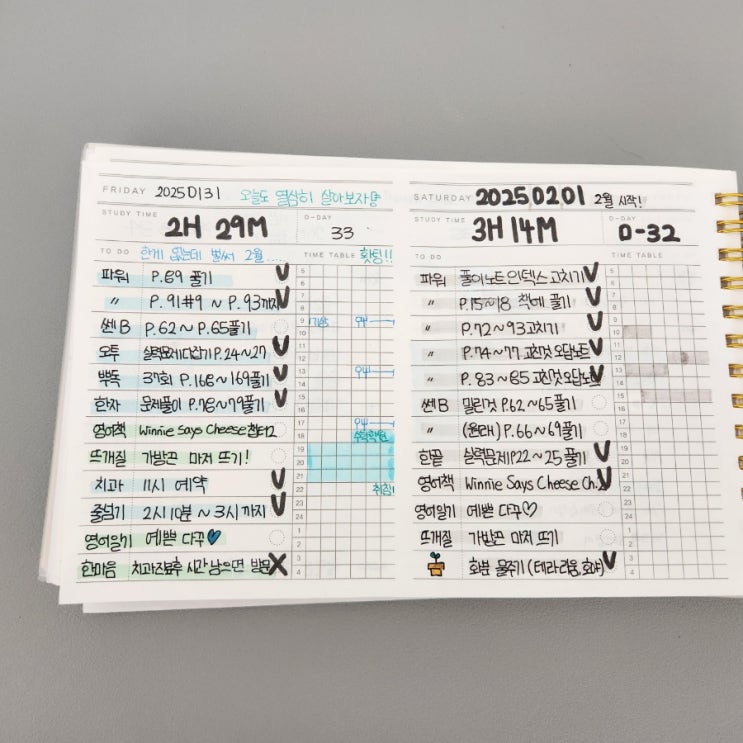 FRIDAY 20250131 오늘도 열심히 살아보자
STUDY TIME 2H 29M D-DAY 33
TO DO 한게 없는데 벌써 2월..... TIME TABLE 홧팅!!
파워 P.89 풀기
〃 P.91#9 ~ P.93까지
쎈B P.62~P.65풀기
오투 실력문제 다잡기 P.24~27
뿌독 37회 P.168~169풀기
한자 문제풀이 P.78~79풀기
영어책 Winnie Says Cheese 챕터2
뜨개질 가방끈 마저 뜨기!
치과 11시 예약
줄넘기 2시10분 ~ 3시까지
영어일기 예쁜 다꾸♥
한마음 치과진료후 시간남으면
5
6
7
8
9 기상
10
11
12
13
14
15
16
17
18 수학학원
19
20
21
22 취침!
23
24
1
2
3
4
SATURDAY 20250201 2월 시작!
STUDY TIME 3H 14M D-DAY D-32
TO DO TIME TABLE
파워 풀이노트 인덱스 고치기
〃 P.15~18 책에 풀기
〃 P.72~93고치기
〃 P.74~77 고친것 오답노트
〃 P.83~85 고친것 오답노트
쎈B 밀린것 P.62~65풀기
〃 (원래) P.66~69풀기
한끝 실력문제 P.22~25풀기
영어책 Winnie Says Cheese Ch.2
영어일기 예쁜 다꾸♡
뜨개질 가방끈 마저 뜨기
화분 물주기 (테라리움, 호야)
5
6
7
8
9
10
11
12
13
14
15
16
17
18
19
20
21
22
23
24
1
2
3
4